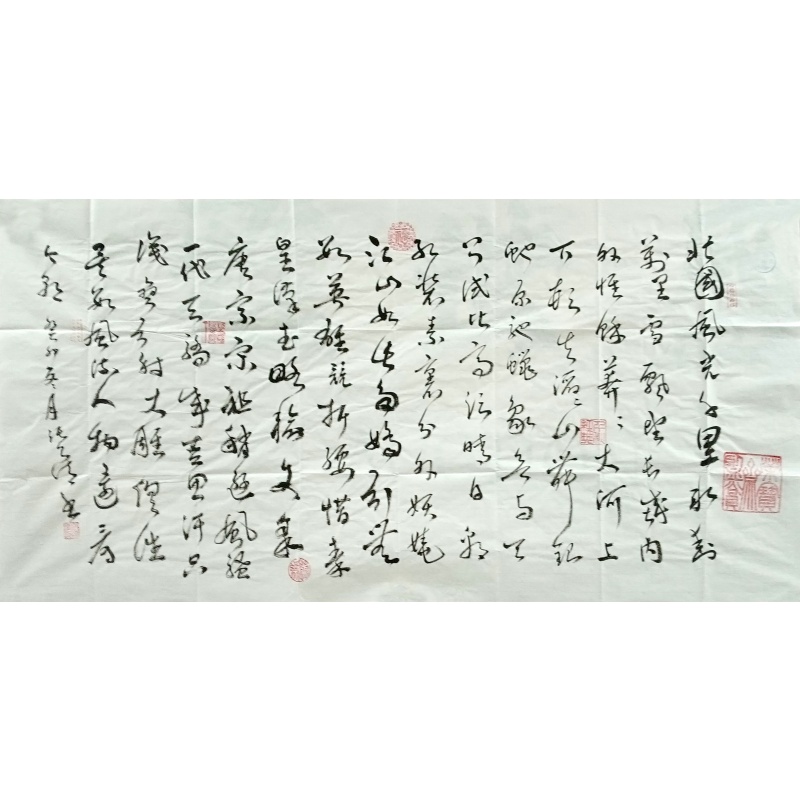 北國風光千里冰封
萬里雪飄望長城內
外惟餘莽〻大河上
下頓失滔〻山舞銀
蛇原馳蠟象欲與天
公試比高須晴日看
紅裝素裹分外妖嬈
江山如此多嬌引無
數英雄競折腰惜秦
皇漢武略輸文采
唐宗宋祖稍遜風騷
一代天驕成吉思汗只
識彎弓射大雕俱往
矣數風流人物還看
今朝 癸卯冬月 書